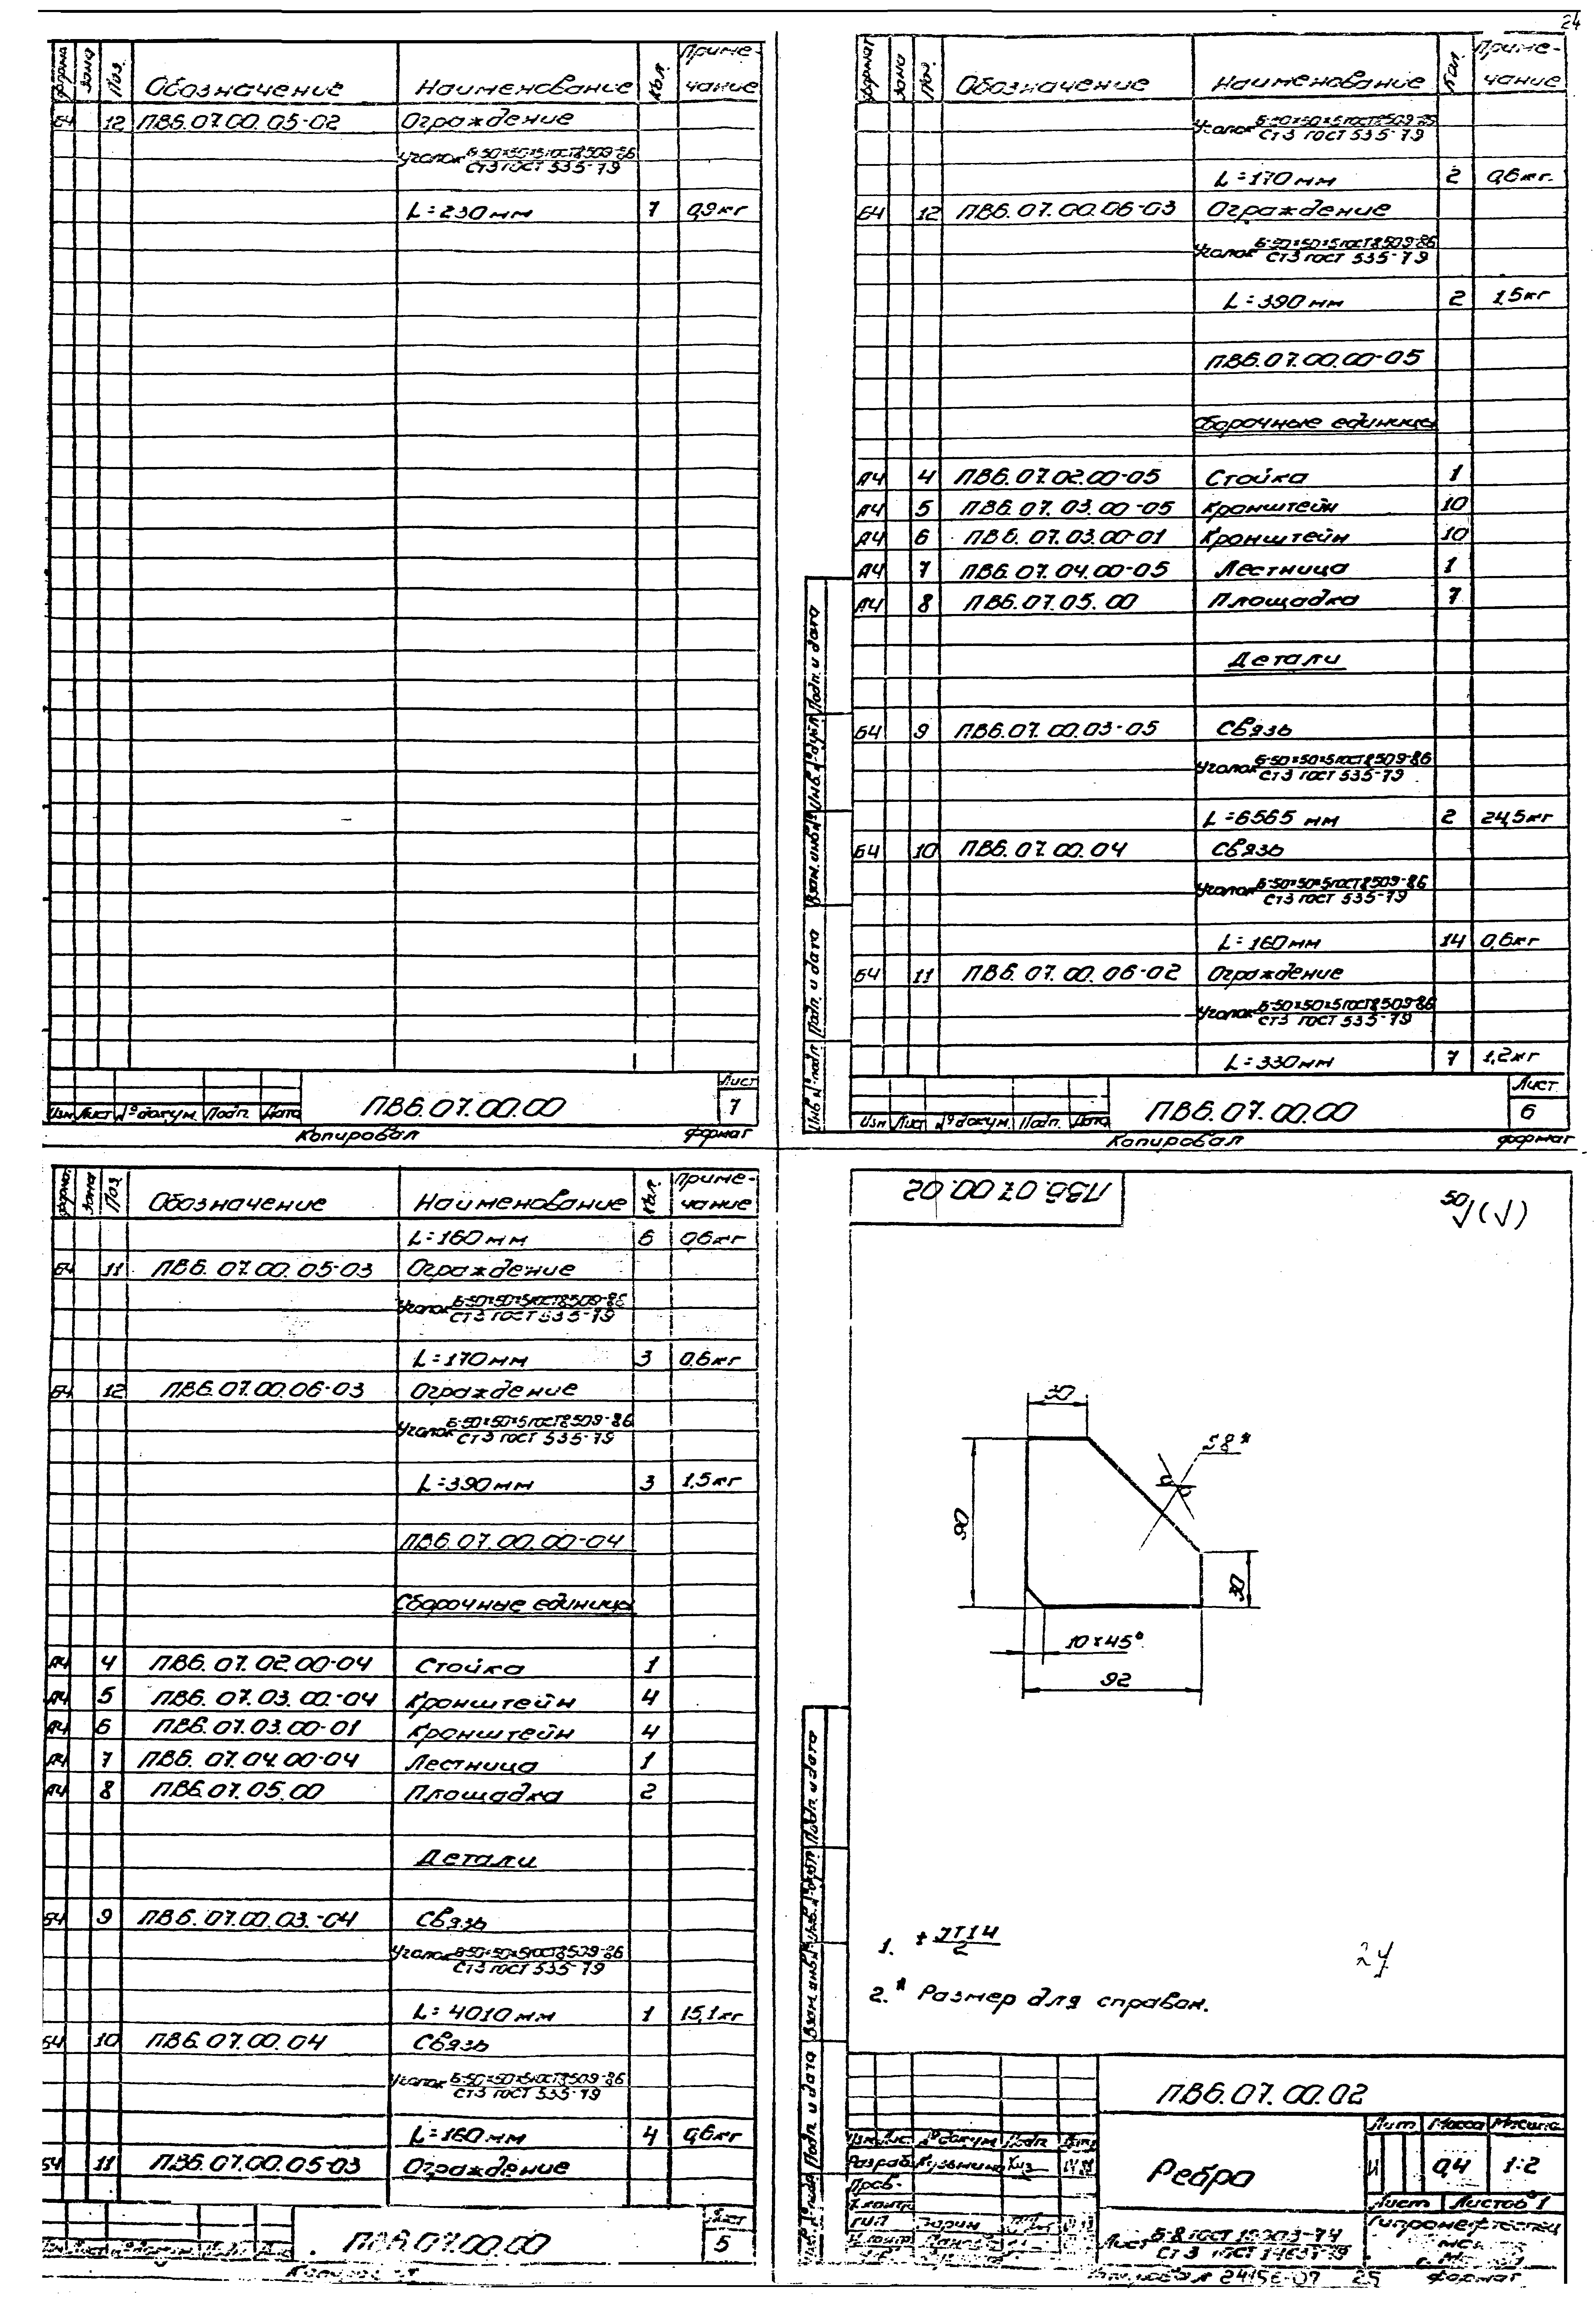 24
Формат Зона Поз. Обозначение Наименование Кол. Приме-
чание
БЧ 12 ПВ6.07.00.05-02 Ограждение
Уголок Б-50×50×5 ГОСТ 8509-86
Ст3 ГОСТ 535-79
L=230мм 7 0,9кг
Лист
Изм Лист № докум. Подп. Дата ПВ6.07.00.00 7
Копировал Формат
Формат Зона Поз. Обозначение Наименование Кол. Приме-
чание
Уголок Б-50×50×5 ГОСТ 8509-86
Ст3 ГОСТ 535-79
L=170мм 2 0,6кг
БЧ 12 ПВ6.07.00.06-03 Ограждение
Уголок Б-50×50×5 ГОСТ 8509-86
Ст3 ГОСТ 535-79
L=390мм 2 1,5кг
ПВ6.07.00.00-05
Сборочные единицы
А4 4 ПВ6.07.02.00-05 Стойка 1
А4 5 ПВ6.07.03.00-05 Кронштейн 10
А4 6 ПВ6.07.03.00-01 Кронштейн 10
А4 7 ПВ6.07.04.00-05 Лестница 1
А4 8 ПВ6.07.05.00 Площадка 7
Детали
БЧ 9 ПВ6.07.00.03-05 Связь
Уголок Б-50×50×5 ГОСТ 8509-86
Ст3 ГОСТ 535-79
L=6565 мм 2 24,5кг
БЧ 10 ПВ6.07.00.04 Связь
Уголок Б-50×50×5 ГОСТ 8509-86
Ст3 ГОСТ 535-79
L=160мм 14 0,6кг
БЧ 11 ПВ6.07.00.06-02 Ограждение
Уголок Б-50×50×5 ГОСТ 8509-86
Ст3 ГОСТ 535-79
L=330мм 7 1,2кг
Инв.№подл. Подп. и дата Взам.инв.№ Инв.№дубл. Подп. и дата
Лист
Изм Лист № докум. Подп. Дата ПВ6.07.00.00 6
Копировал Формат
Формат Зона Поз. Обозначение Наименование Кол. Приме-
чание
L=160мм 6 0,6кг
БЧ 11 ПВ6.07.00.05-03 Ограждение
Уголок Б-50×50×5 ГОСТ 8509-86
Ст3 ГОСТ 535-79
L=170мм 3 0,6кг
БЧ 12 ПВ6.07.00.06-03 Ограждение
Уголок Б-50×50×5 ГОСТ 8509-86
Ст3 ГОСТ 535-79
L=390мм 3 1,5кг
ПВ6.07.00.00-04
Сборочные единицы
А4 4 ПВ6.07.02.00-04 Стойка 1
А4 5 ПВ6.07.03.00-04 Кронштейн 4
А4 6 ПВ6.07.03.00-01 Кронштейн 4
А4 7 ПВ6.07.04.00-04 Лестница 1
А4 8 ПВ6.07.05.00 Площадка 2
Детали
БЧ 9 ПВ6.07.00.03-04 Связь
Уголок Б-50×50×5 ГОСТ 8509-86
Ст3 ГОСТ 535-79
L=4010мм 1 15,1кг
БЧ 10 ПВ6.07.00.04 Связь
Уголок Б-50×50×5 ГОСТ 8509-86
Ст3 ГОСТ 535-79
L=160мм 4 0,6кг
БЧ 11 ПВ6.07.00.05-03 Ограждение
Лист
ПВ6.07.00.00 5
ПВ6.07.00.02
50 √(√)
30
S8*
90
30
10×45°
92
1. ± IT14
2
2.* Размер для справок.
24
Инв.№подл. Подп. и дата Взам.инв.№ Инв.№дубл. Подп. и дата
ПВ6.07.00.02
Лит Масса Масшт.
Изм Лис. № докум. Подп. Дата
Разраб. Кузьмина
Ребро И 0,4 1:2
Пров.
Т.контр
Лист Листов 1
ГИП
Н.контр
Лист Б-8 ГОСТ 19903-74
Ст3 ГОСТ 14637-79
Гипронефтеспец
24156-07 25 Формат